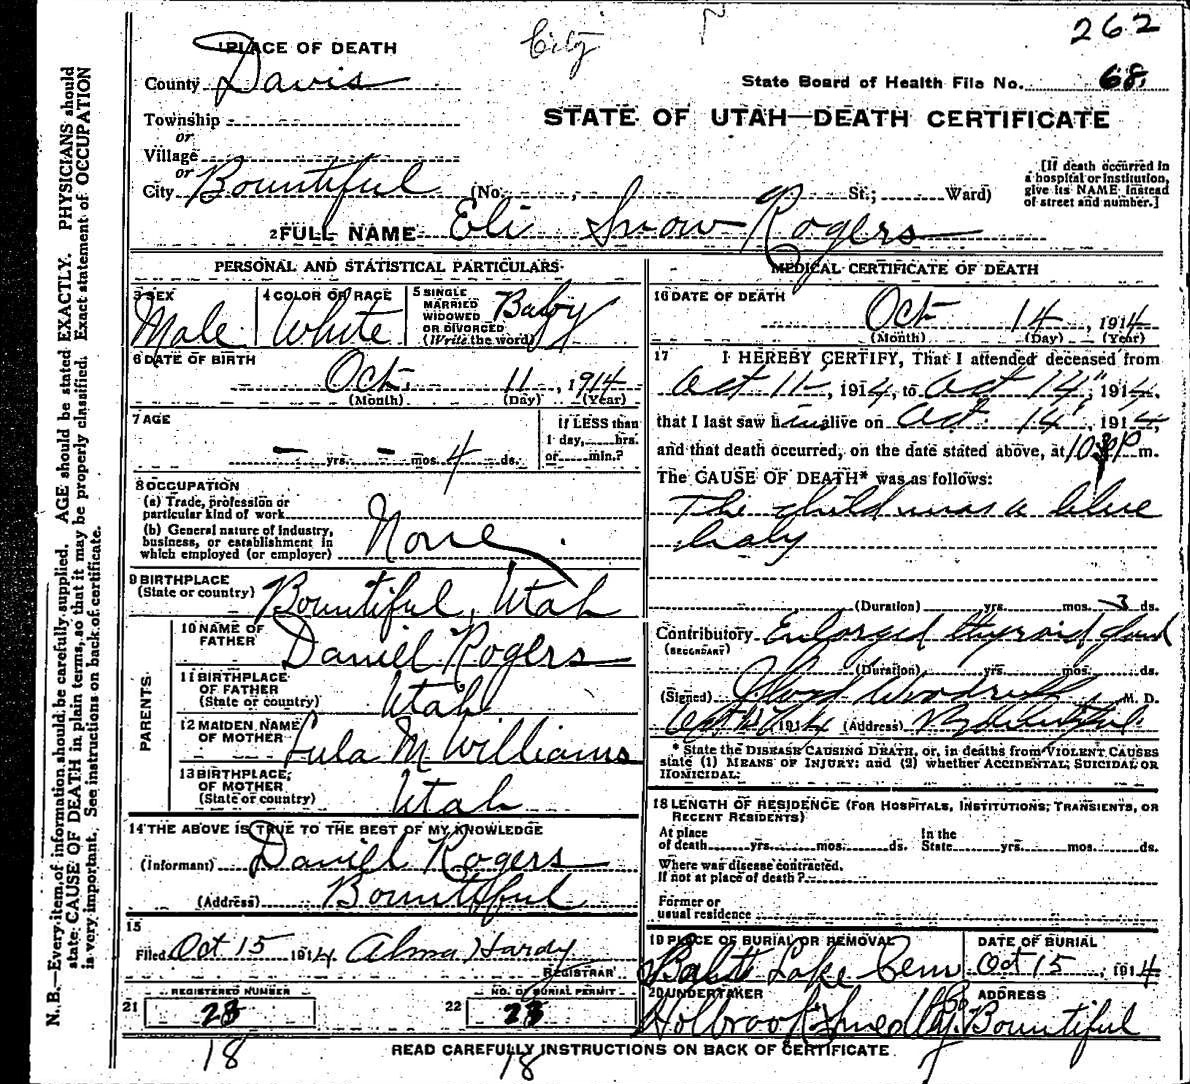 262
City
1 PLACE OF DEATH
County Davis
State Board of Health File No. 68
Township
or
Village
or
City Bountiful (No. , St.; Ward)
STATE OF UTAH—DEATH CERTIFICATE
[If death occurred in
a hospital or institution,
give its NAME instead
of street and number.]
2 FULL NAME Eli Snow Rogers
PERSONAL AND STATISTICAL PARTICULARS
3 SEX
Male
4 COLOR OR RACE
White
5 SINGLE
MARRIED
WIDOWED
OR DIVORCED
(Write the word)
Baby
6 DATE OF BIRTH
Oct. 11, 1914
(Month) (Day) (Year)
7 AGE
— yrs. — mos. 4 ds.
If LESS than
1 day, hrs.
or min.?
8 OCCUPATION
(a) Trade, profession or
particular kind of work
(b) General nature of industry,
business, or establishment in
which employed (or employer)
None
9 BIRTHPLACE
(State or country)
Bountiful, Utah
PARENTS
10 NAME OF
FATHER
Daniel Rogers
11 BIRTHPLACE
OF FATHER
(State or country)
Utah
12 MAIDEN NAME
OF MOTHER
Lula M Williams
13 BIRTHPLACE
OF MOTHER
(State or country)
Utah
14 THE ABOVE IS TRUE TO THE BEST OF MY KNOWLEDGE
(Informant) Daniel Rogers
(Address) Bountiful
15
Filed Oct 15 1914 Alma Hardy
REGISTRAR
REGISTERED NUMBER
21 23
NO. OF BURIAL PERMIT
22 23
18 18
MEDICAL CERTIFICATE OF DEATH
16 DATE OF DEATH
Oct 14, 1914
(Month) (Day) (Year)
17 I HEREBY CERTIFY, That I attended deceased from
Oct 11, 1914, to Oct 14", 1914,
that I last saw him alive on Oct. 14, 1914,
and that death occurred, on the date stated above, at 10 P m.
The CAUSE OF DEATH* was as follows:
The child was a blue
baby
(Duration) yrs. mos. 3 ds.
Contributory Enlarged thyroid gland
(SECONDARY)
(Duration) yrs. mos. ds.
(Signed) M. D.
1914 (Address)
* State the DISEASE CAUSING DEATH, or, in deaths from VIOLENT CAUSES
state (1) MEANS OF INJURY; and (2) whether ACCIDENTAL, SUICIDAL OR
HOMICIDAL:
18 LENGTH OF RESIDENCE (FOR HOSPITALS, INSTITUTIONS, TRANSIENTS, OR
RECENT RESIDENTS)
At place
of death yrs. mos. ds.
In the
State yrs. mos. ds.
Where was disease contracted.
If not at place of death?
Former or
usual residence
19 PLACE OF BURIAL OR REMOVAL
Salt Lake Cem
DATE OF BURIAL
Oct 15, 1914
20 UNDERTAKER
Holbrook Smedley Co
ADDRESS
Bountiful
READ CAREFULLY INSTRUCTIONS ON BACK OF CERTIFICATE
N. B.—Every item of information should be carefully supplied. AGE should be stated EXACTLY. PHYSICIANS should
state CAUSE OF DEATH in plain terms, so that it may be properly classified. Exact statement of OCCUPATION
is very important. See instructions on back of certificate.